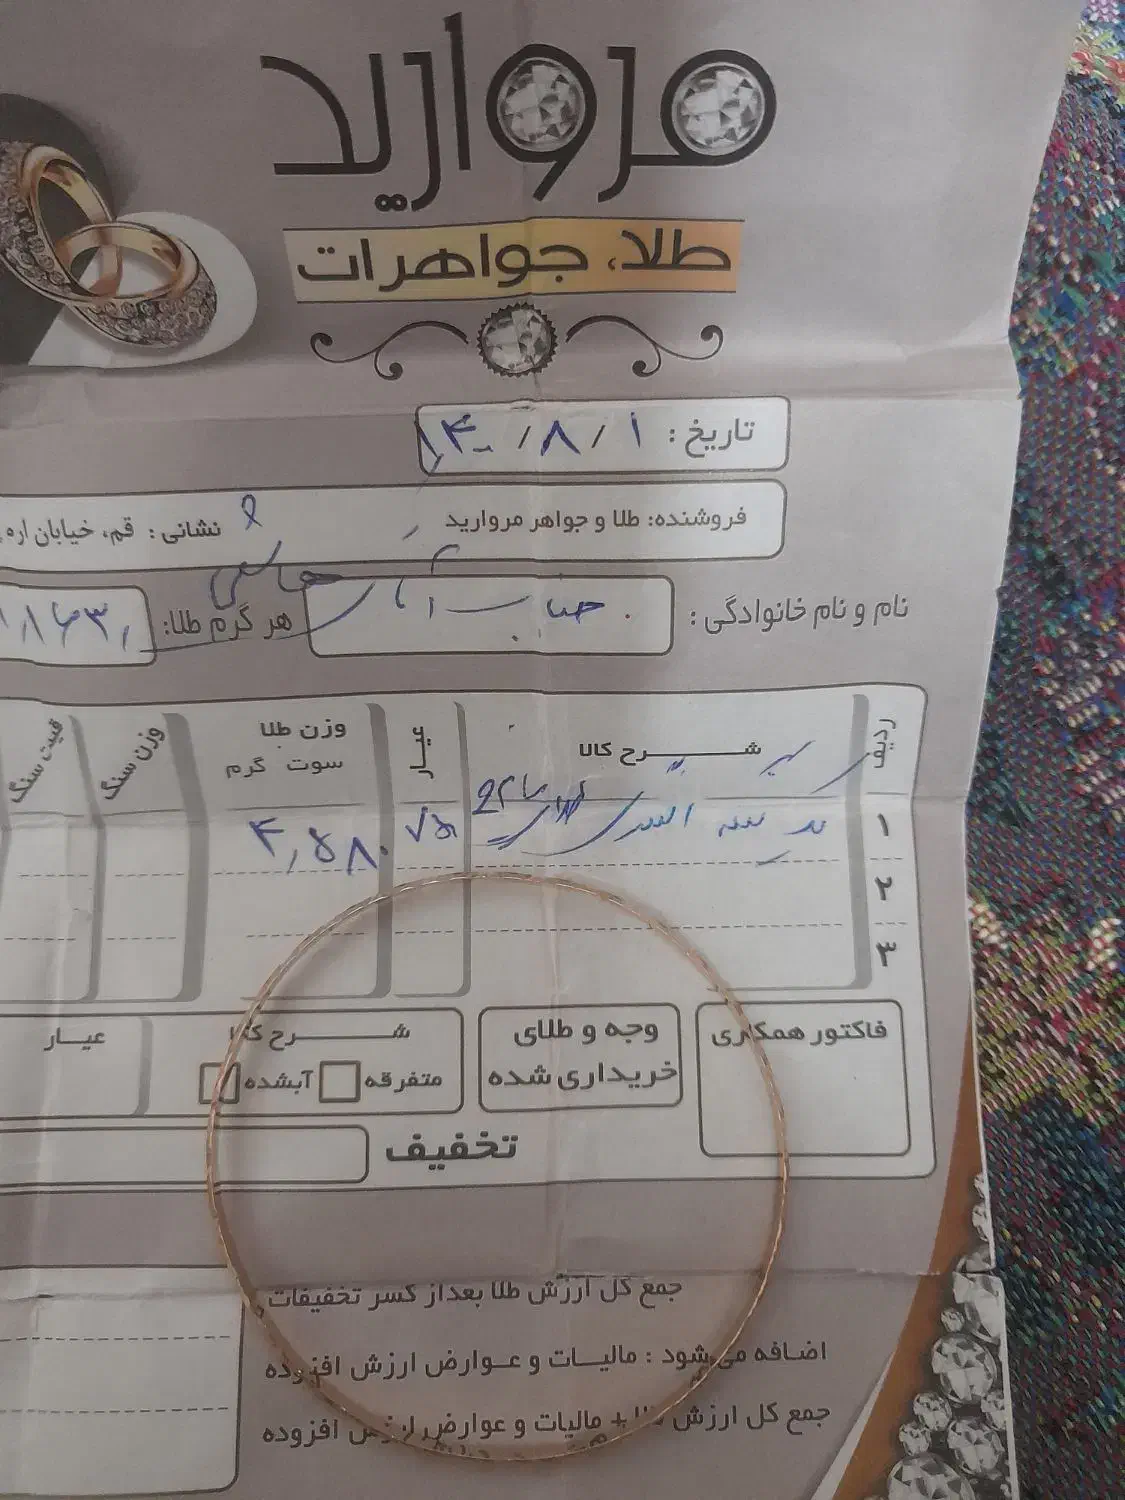 مروارید
طلا، جواهرات
تاریخ : ۱ / ۸ / ۱۴۰۰
فروشنده: طلا و جواهر مروارید نشانی : قم، خیابان
نام و نام خانوادگی : جناب آقای هر گرم طلا:
ردیف شرح کالا عیار وزن طلا وزن سنگ قیمت سنگ
سوت گرم
۱ ۷۵۰ ۴,۵۸۰
۲
۳
فاکتور همکاری وجه و طلای خریداری شده شرح کالا عیار
متفرقه آبشده
تخفیف
جمع کل ارزش طلا بعد از کسر تخفیفات
اضافه می‌شود : مالیات و عوارض ارزش افزوده
جمع کل ارزش طلا + مالیات و عوارض ارزش افزوده